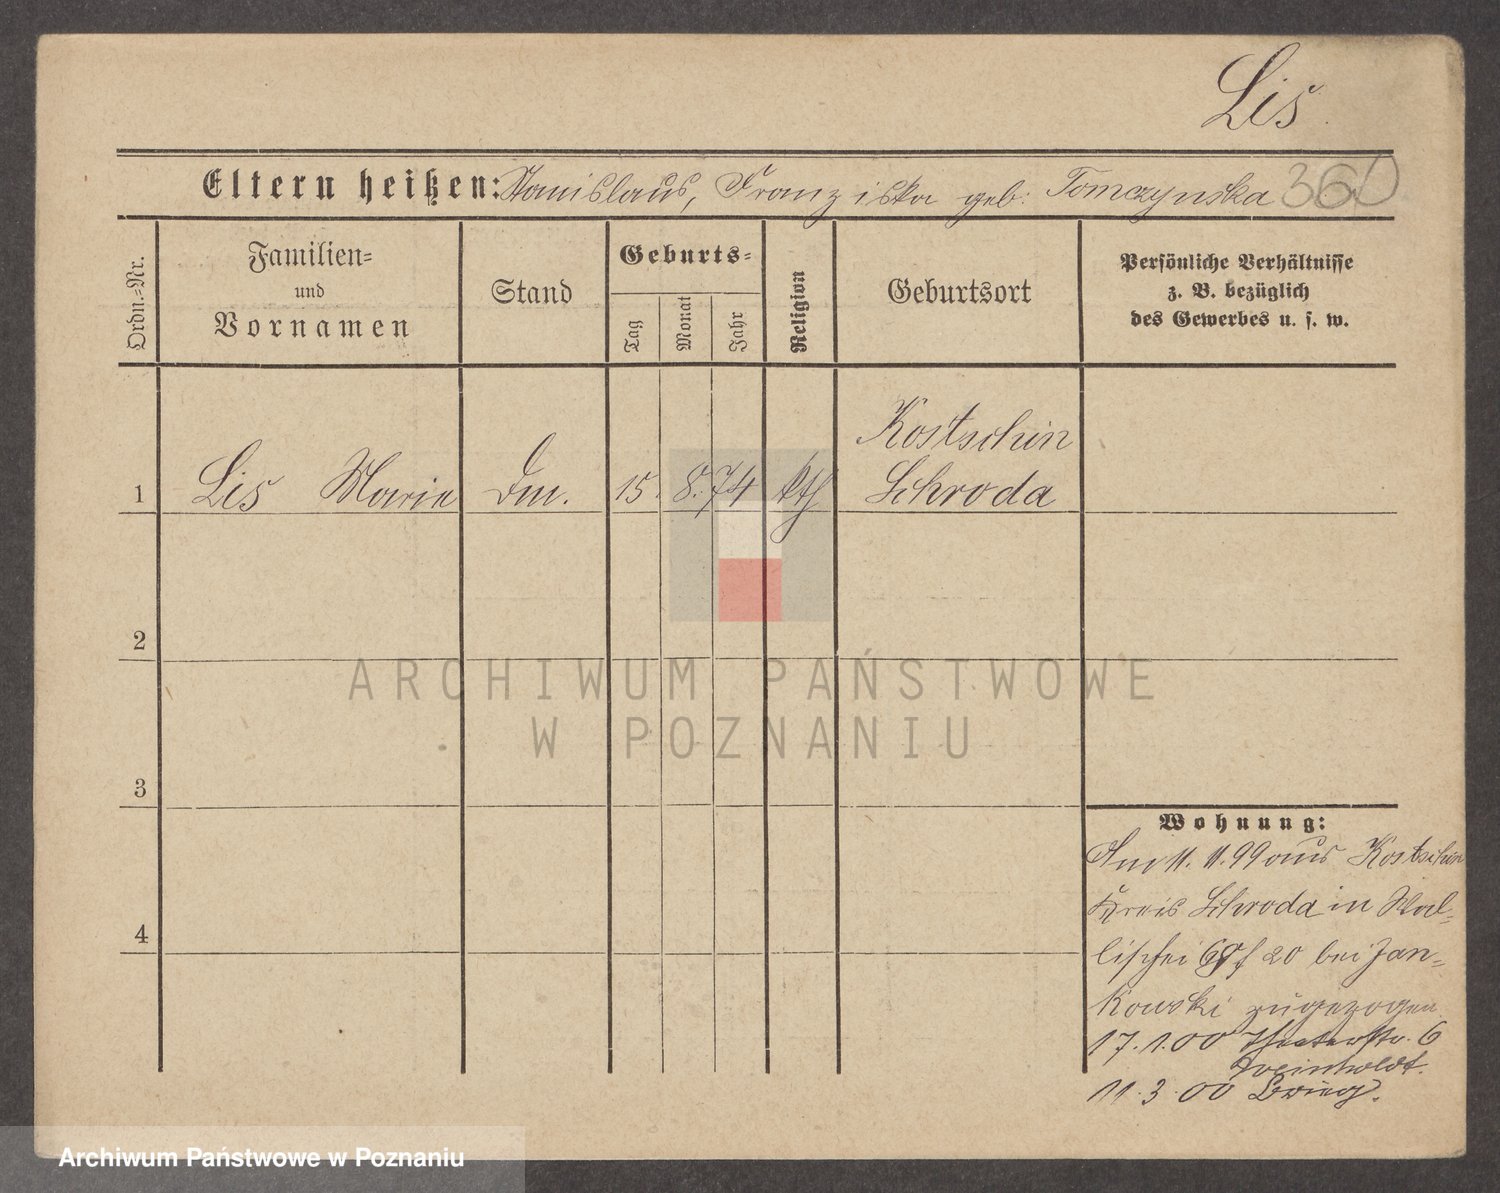 Lis
Eltern heißen: Stanislaus, Franziska geb: Tomczynska 360
Ordn.=Nr.
Familien=
und
Vornamen
Stand
Geburts=
Tag
Monat
Jahr
Religion
Geburtsort
Persönliche Verhältnisse
z. B. bezüglich
des Gewerbes u. s. w.
Kostschin
1 Lis Marie Dm. 15. 8. 74 kth Schroda
2
3
4
Wohnung:
Am 11. 11. 99 aus Kostschin
Kreis Schroda in Wal=
lischei 20 bei Jan=
kowski zugezogen
17. 1. 00 Theaterstr. 6
11. 3. 00 Brieg.
ARCHIWUM PAŃSTWOWE
W POZNANIU
Archiwum Państwowe w Poznaniu